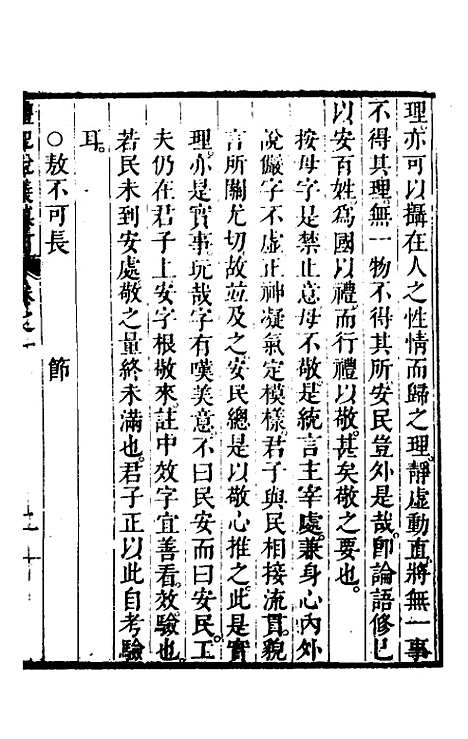 理亦可以攝在人之性情而歸之理靜虛動直將無一事
不得其理無一物不得其所安民豈外是哉卽論語修已
以安百姓爲國以禮而行禮以敬甚矣敬之要也
按毋字是禁止意毋不敬是統言主宰處兼身心內外
說儼字不虛正神凝氣定模樣君子與民相接流貫貌
言所關尤切故並及之安民總是以敬心推之此是實
理亦是實事玩哉字有嘆美意不曰民安而曰安民工
夫仍在君子上安字根敬來註中效字宜善看效驗也
若民未到安處敬之量終未滿也君子正以此自考驗
耳
○敖不可長 節